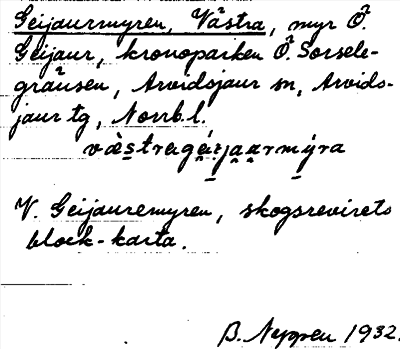 Geijaurmyren, Västra, myr Ö.
Geijaur, kronoparken Ö. Sorsele-
gränsen, Arvidsjaur sn, Arvids-
jaur tg, Norrb. l.
västragèi̯jaarmýra
V. Geijauremyren, skogsrevirets
block-karta.
B. Nygren 1932.